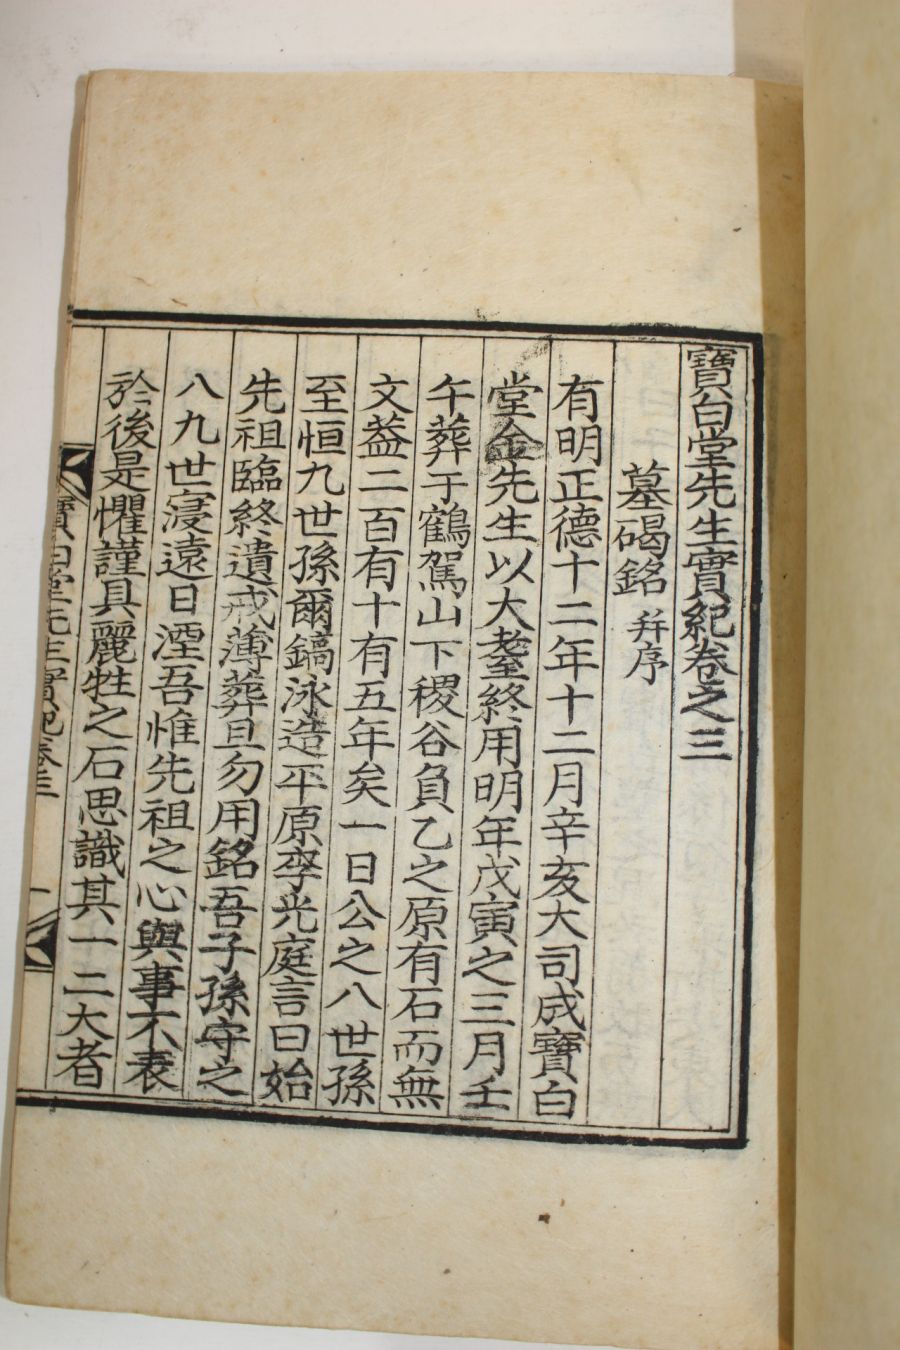 寶白堂先生實紀卷之三
墓碣銘 幷序
有明正德十二年十二月辛亥大司成寶白
堂金先生以大耋終用明年戊寅之三月壬
午葬于鶴駕山下稷谷負乙之原有石而無
文葢二百有十有五年矣一日公之八世孫
至恒九世孫爾鎬泳造平原李光庭言曰始
先祖臨終遺戒薄葬且勿用銘吾子孫守之
八九世寖遠日湮吾惟先祖之心與事不表
於後是懼謹具麗牲之石思識其一二大者
寶白堂先生實紀卷三
一